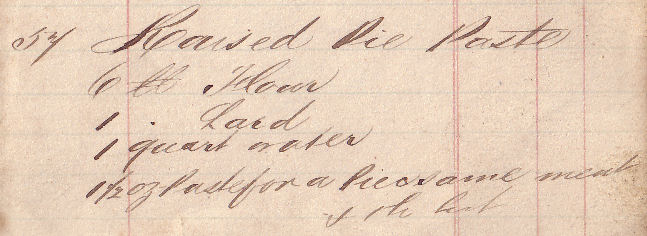 57 Raised Pie Paste
6 lb Flour
1 . Lard
1 quart water
1 1/2 oz Paste for a Pie & same meat
& the